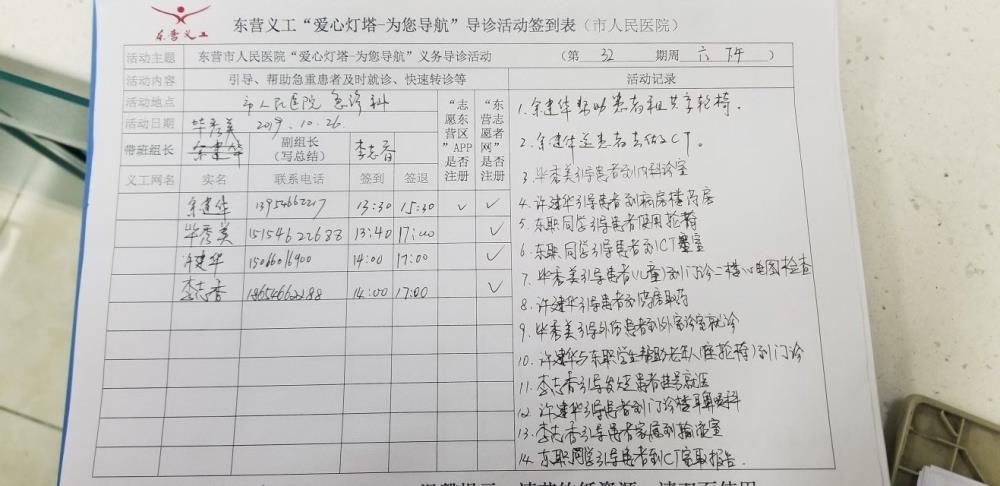 东营义工
东营义工“爱心灯塔-为您导航”导诊活动签到表（市人民医院）
活动主题 东营市人民医院“爱心灯塔-为您导航”义务导诊活动 （第 32 期周 六 下午）
活动内容 引导、帮助急重患者及时就诊、快速转诊等 活动记录
活动地点 市人民医院急诊科
活动日期 毕秀美 2019.10.26.
带班组长 余建华 副组长（写总结） 李志香
“志愿东营区”APP是否注册
“东营志愿者网”是否注册
义工网名 实名 联系电话 签到 签退
余建华 13954662217 13:30 15:30 ✓ ✓
毕秀美 15154622688 13:40 17:00 ✓
许建华 15066016900 14:00 17:00 ✓
李志香 18654662188 14:00 17:00 ✓
1.余建华帮助患者租共享轮椅.
2.余建华送患者去做CT。
3.毕秀美引导患者到内科诊室
4.许建华引导患者到病房楼药房
5.东职同学引导患者使用轮椅
6.东职同学引导患者到CT室
7.毕秀美引导患者(儿童)到门诊二楼心电图检查
8.许建华引导患者到药房取药
9.毕秀美引导外伤患者到外客诊室就诊
10.许建华与东职学生帮助老年人(座轮椅)到门诊
11.李志香引导发烧患者挂号就医
12.许建华引导患者到门诊楼耳鼻喉科
13.李志香引导患者家属到输液室
14.东职同学引导患者到CT室取报告.